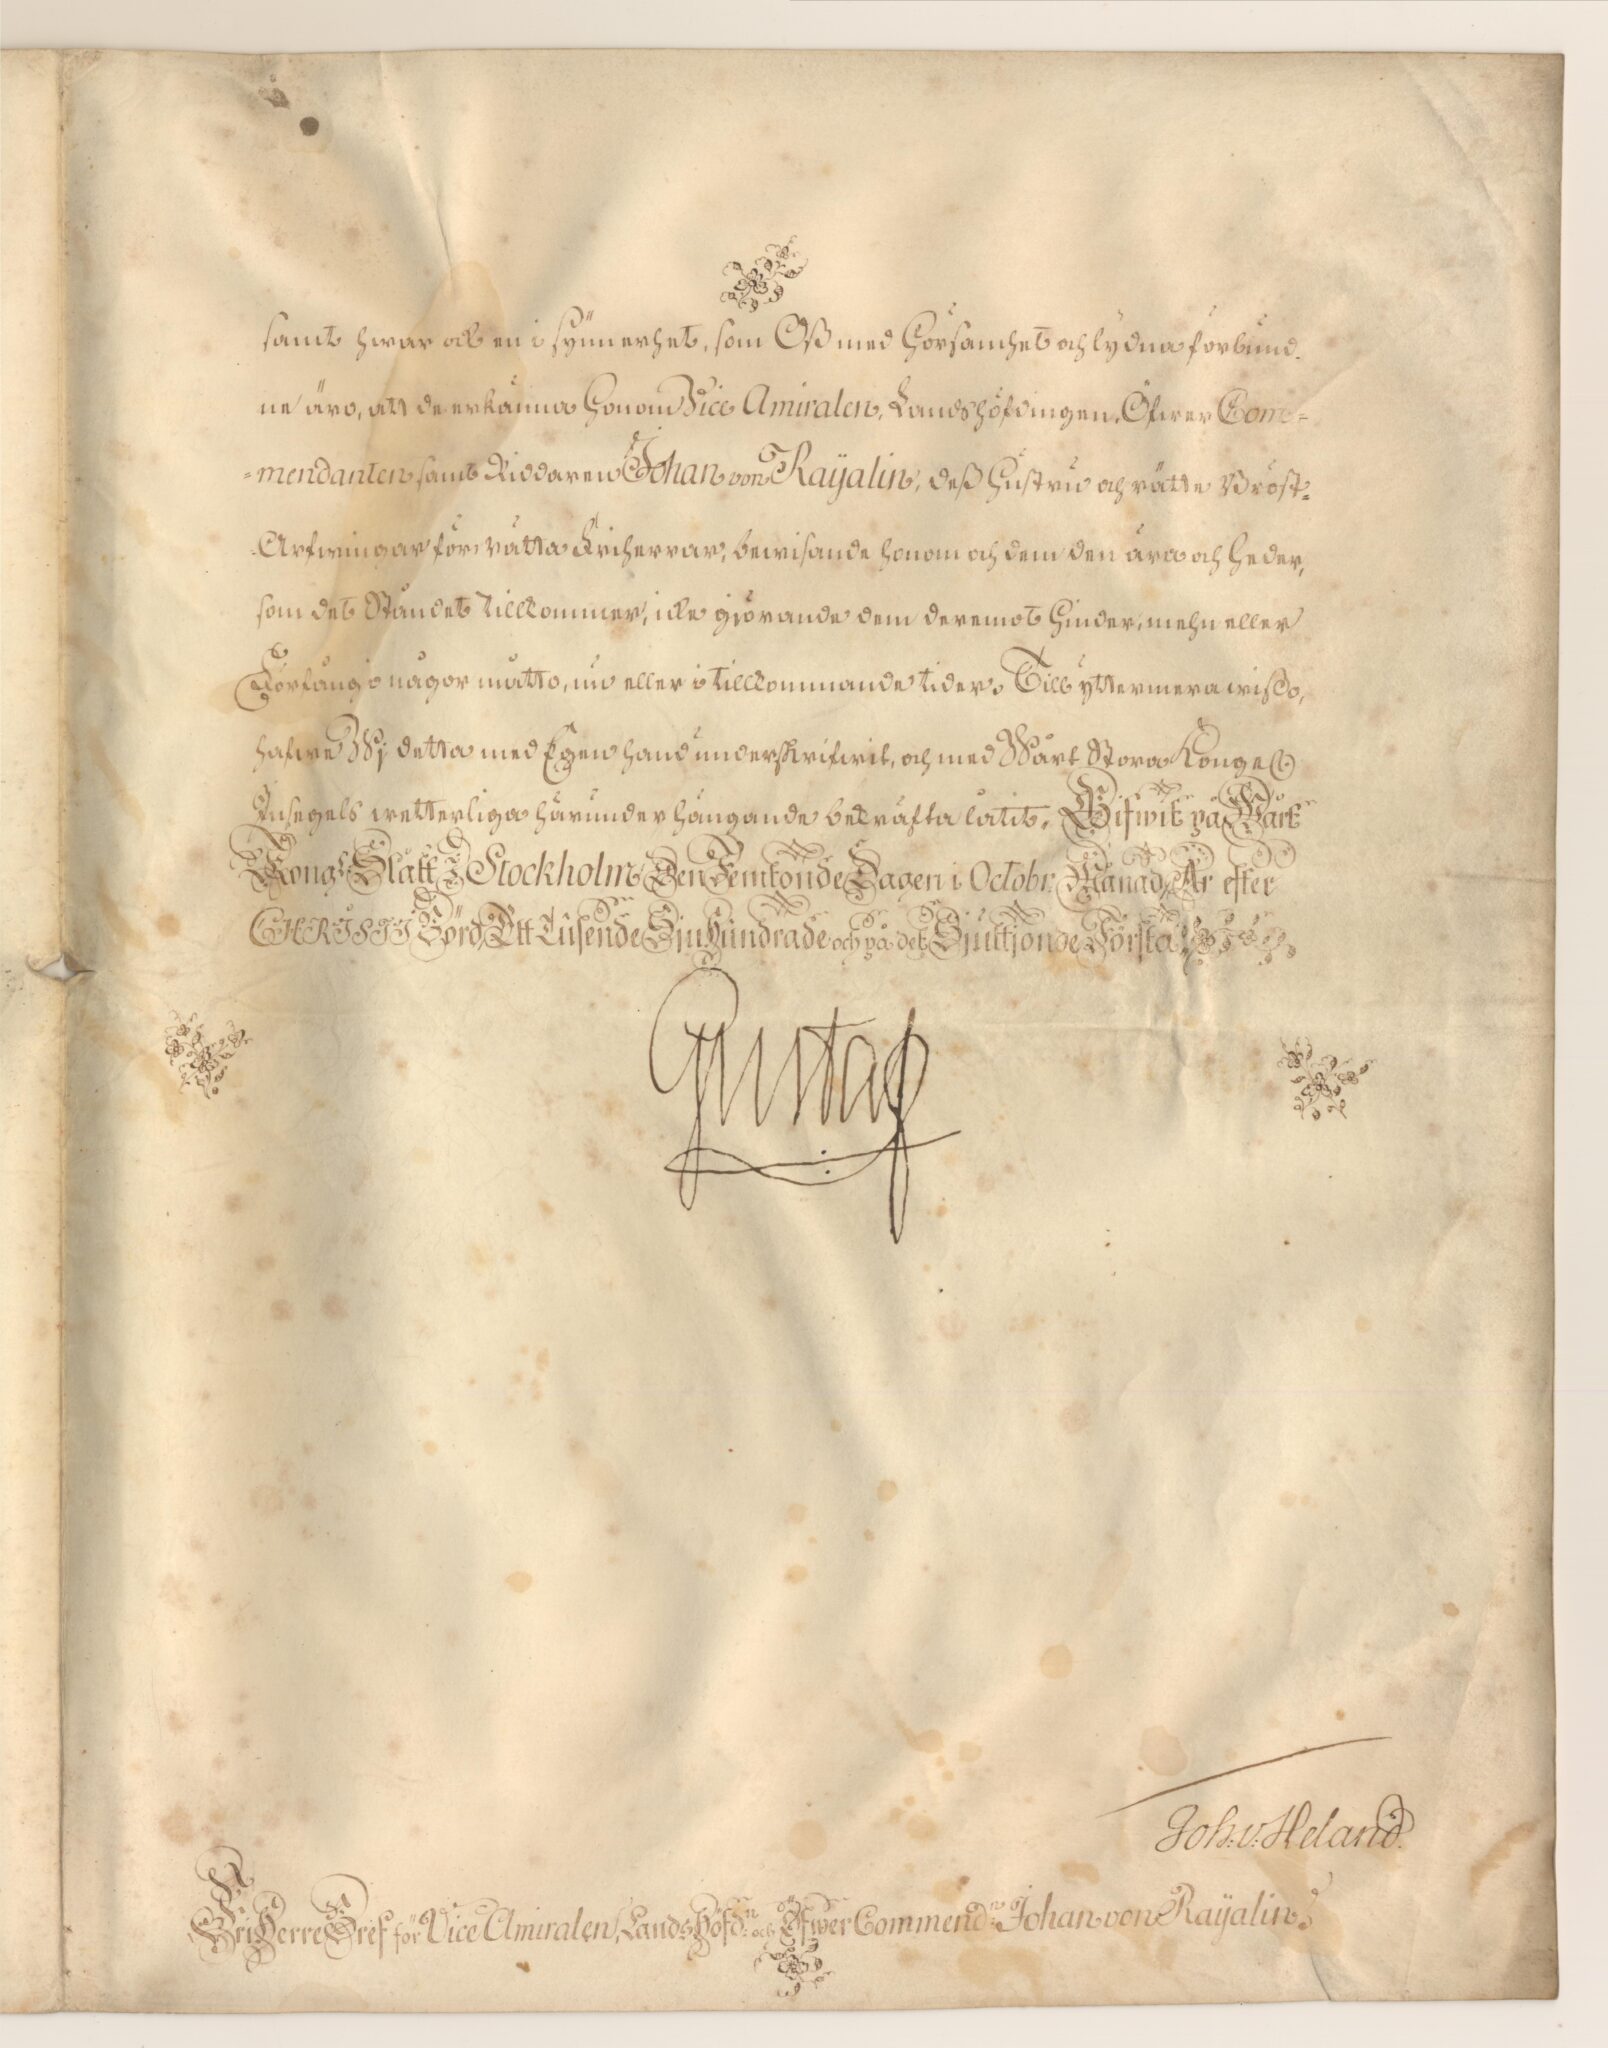 samt hwar ock en i synnerhet, som Oß med Hörsamhet och lydna förbund-
ne äro, att de erkänna Honom Vice Amiralen, Landshöfdingen, Öfwer Com-
-mendanten samt Riddaren Johan von Rayalin, deß Hustru och rätte Bröst-
-Arfwingar för rätta Friherrar, bewisande honom och dem den ära och Heder,
som det Ståndet tillkommer, icke giörande dem deremot Hinder, mehn eller
Förfång i någor måtto, nu eller i tillkommande tider. Till yttermera wisso,
hafwe Wj detta med Egen hand underskrifwit, och med Wårt Stora Konge
Insegels wetterliga härunder hängande bekräfta låtit. Gifwit på Wårt
Kongs Slått i Stockholm Den Femtonde Dagen i Octobr: Månad, År efter
CHRISTI Börd, Ett Tusende Sjuhundrade och på det Sjuttjonde Första.
Gustaf
Joh: v: Heland.
FriHerre Bref för Vice Amiralen, LandsHöfdn: och Öfwer Commendn: Johan von Rayalin